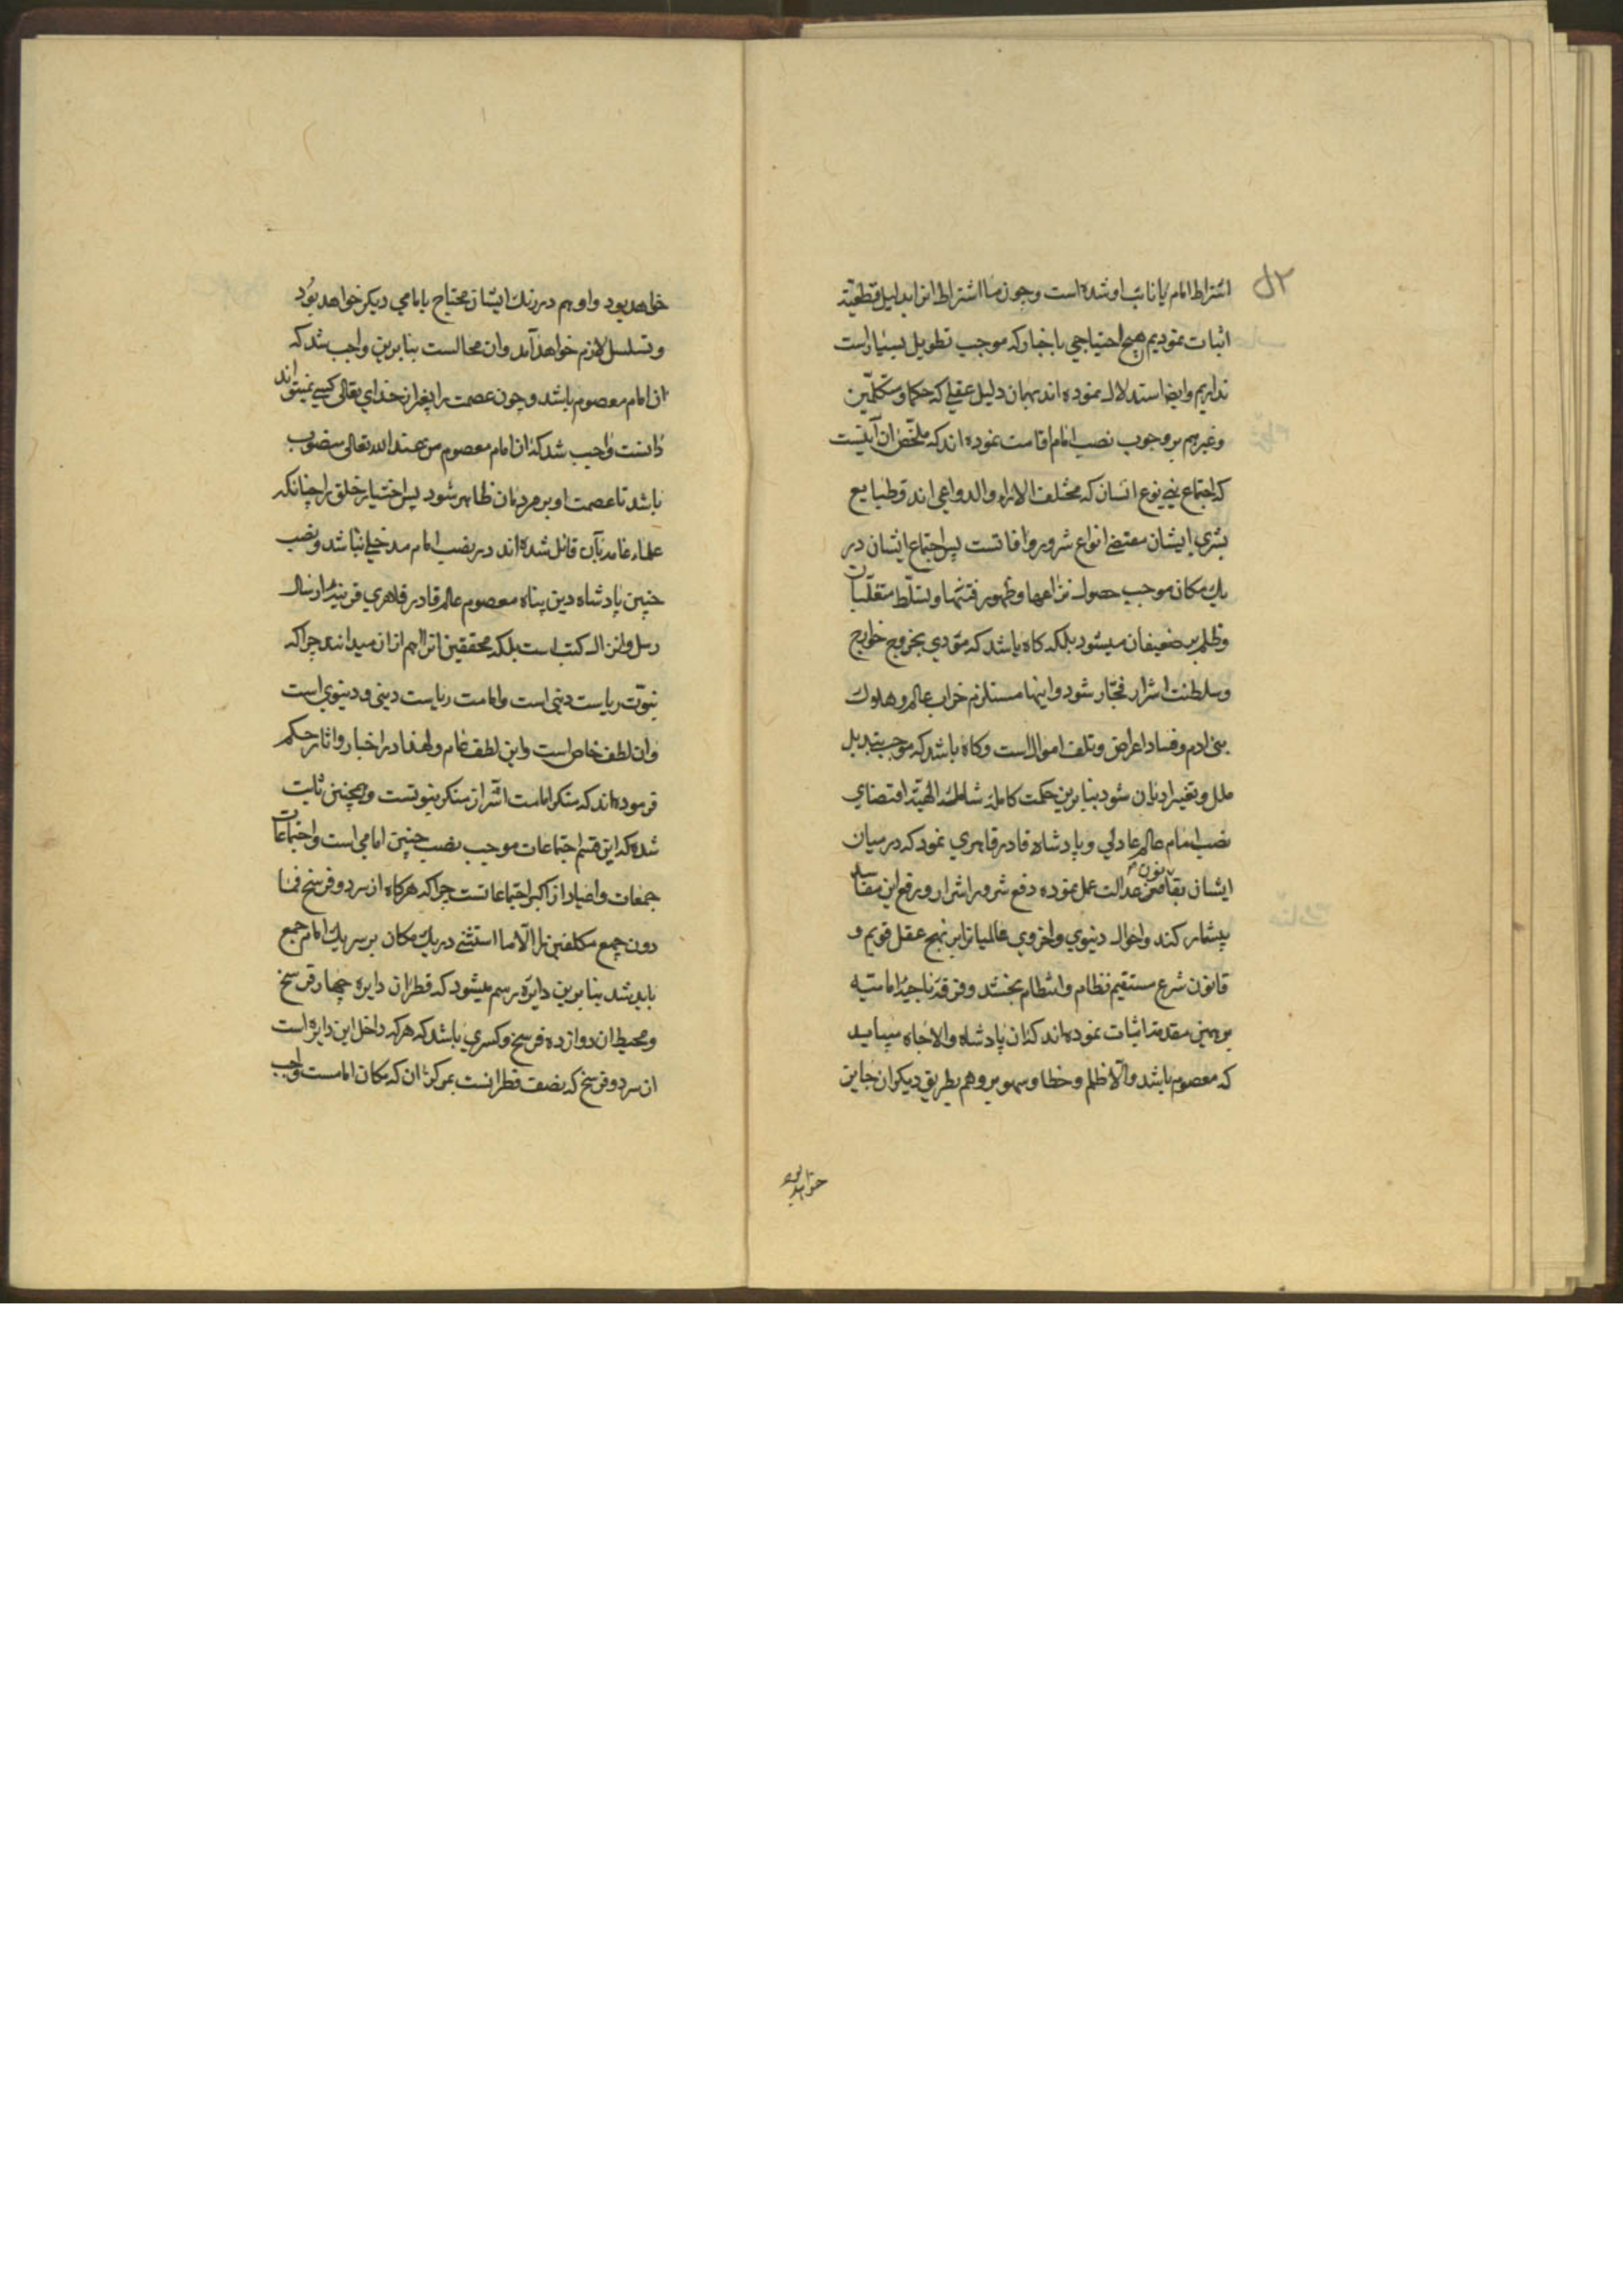 اشتراط امام یا نائب او شده است و چون ما اشتراط انرا بدلیل قطعیّه
اثبات نمودیم هیچ احتیاجی باخبار که موجب تطویل بسیار است
نداریم وایضا استدلال نموده اند بهمان دلیل عقلی که حکما و متکلّمین
وغیرهم بر وجوب نصب امام اقامت نموده اند که ملخّص آن آنست
که اجتماع بنی نوع انسان که مختلف الاراء والدواعی اند وطبایع
بشری ایشان مقتضی انواع شرور وافاتست پس اجتماع ایشان در
یك مکان موجب حصول نزاعها وظهور فتنها وتسلّط متغلّبان
وظلم بر ضعیفان میشود بلکه کاه باشد که مؤدي بخروج خوارج
وسلطنت اشرار فجّار شود واینها مستلزم خراب عالم و هلوك
بنی ادم وفساد اعراض وتلف اموال است وکاه باشد که موجب تبدیل
ملل وتغییر ادیان شود بنا برین حکمت کاملهٔ شاملهٔ الهیّه اقتضاي
نصب امام عالم عادلي وپادشاه قادر قاهري نمود که در میان
ایشان بقانون عدالت عمل نموده دفع شرور اشرار ورفع این مفاسد
بیشمار کند واحوال دنیوي واخروي عالمیانرا بر نهج عقل قویم و
قانون شرع مستقیم نظام وانتظام بخشد وفرقهٔ ناجیهٔ امامیّه
بر همین مقدمه اثبات نموده اند که ان پادشاه والاجاه میباید
که معصوم باشد والّا ظلم وخطا وسهو برو هم بطریق دیکران جایز
خواهد بود
خواهد بود واو هم در رنك ایشان محتاج بامامي دیکر خواهد بود
وتسلسل لازم خواهد آمد وان محالست بنا برین واجب شد که
ان امام معصوم باشد وچون عصمت را بغیر از خداي تعالی کسی نمیتواند
دانست واجب شد که ان امام معصوم من عند الله تعالی منصوب
باشد تا عصمت او بر مردمان ظاهر شود پس اختیار خلق را چنانکه
علماء عامه بآن قائل شده اند در نصب امام مدخلی نباشد ونصب
چنین پادشاه دین پناه معصوم عالم قادر قاهري قرینهٔ ارسال
رسل وانزال کتب است بلکه محققین انرا اهم ازان میدانند چراکه
نبوّت ریاست دینی است وامامت ریاست دینی ودنیوي است
وان لطف خاص است واین لطف عام ولهذا در اخبار واثار حکم
فرموده اند که منکر امامت اشرّ از منکر نبوتست وهمچنین ثابت
شده که این قسم اجتماعات موجب نصب چنین امامي است واجتماعات
جمعات واعیاد از اکبر اجتماعاتست چراکه هرکاه از سر دو فرسخ فما
دون جمیع مکلفین را الّا ما استثنی در یك مکان بر سر یك امام جمع
باید شد بنا برین دایره رسم میشود که قطر ان دایره چهار فرسخ
ومحیط ان دوازده فرسخ وکسري باشد که هرکه داخل این دایره است
از سر دو فرسخ که نصف قطر انست بمرکز ان که مکان امامست واجب